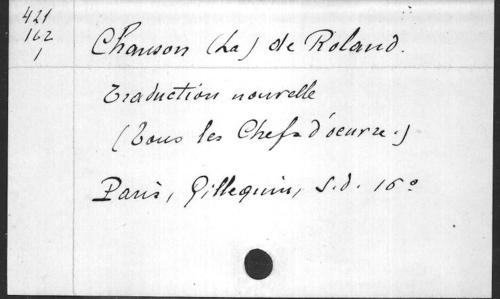 421
162
1
Chanson (La) de Roland.
Traduction nouvelle
(Tous les Chefs d'oeuvre.)
Paris, Gillequin, s.d. 16°